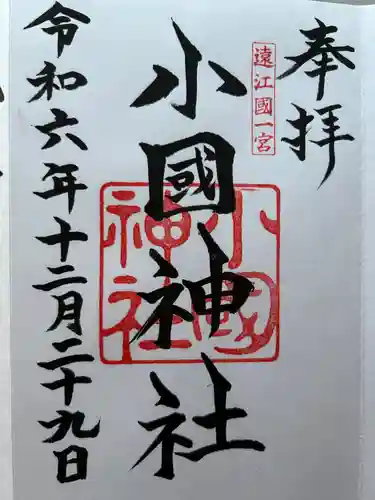 奉拝
遠江國一宮
小國神社
小國神社
令和六年十二月二十九日